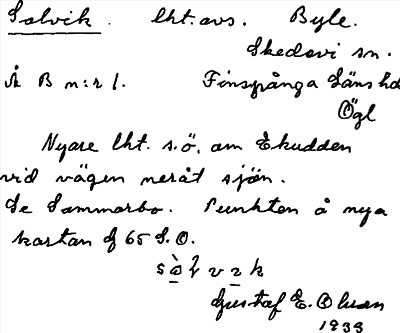 Solvik. lht. avs. Byle.
Skedevi sn.
Å B n:r 1. Finspånga Läns hd
Ögl
Nyare lht. s.ö. om Ekudden
vid vägen neråt sjön.
Se Sommarbo. Punkten å nya
kartan f 65 S.O.
Gustaf E. Olsson
1933